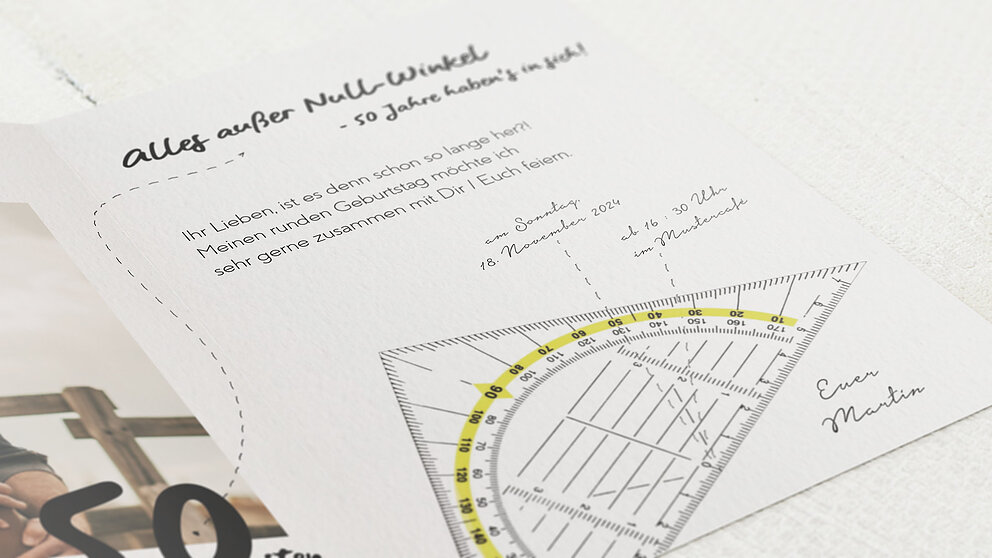 alles außer Null-Winkel
- 50 Jahre haben's in sich!
Ihr Lieben, ist es denn schon so lange her?!
Meinen runden Geburtstag möchte ich
sehr gerne zusammen mit Dir / Euch feiern.
am Sonntag,
18. November 2024
ab 16 : 30 Uhr
im Mustercafé
10 20 30 40 50 60 70 80 90 100 110 120 130 140
170 160 150 140 130 120 110 100 80 70 60 50 40
3 2 1
0
3 2 1
Euer
Martin
50